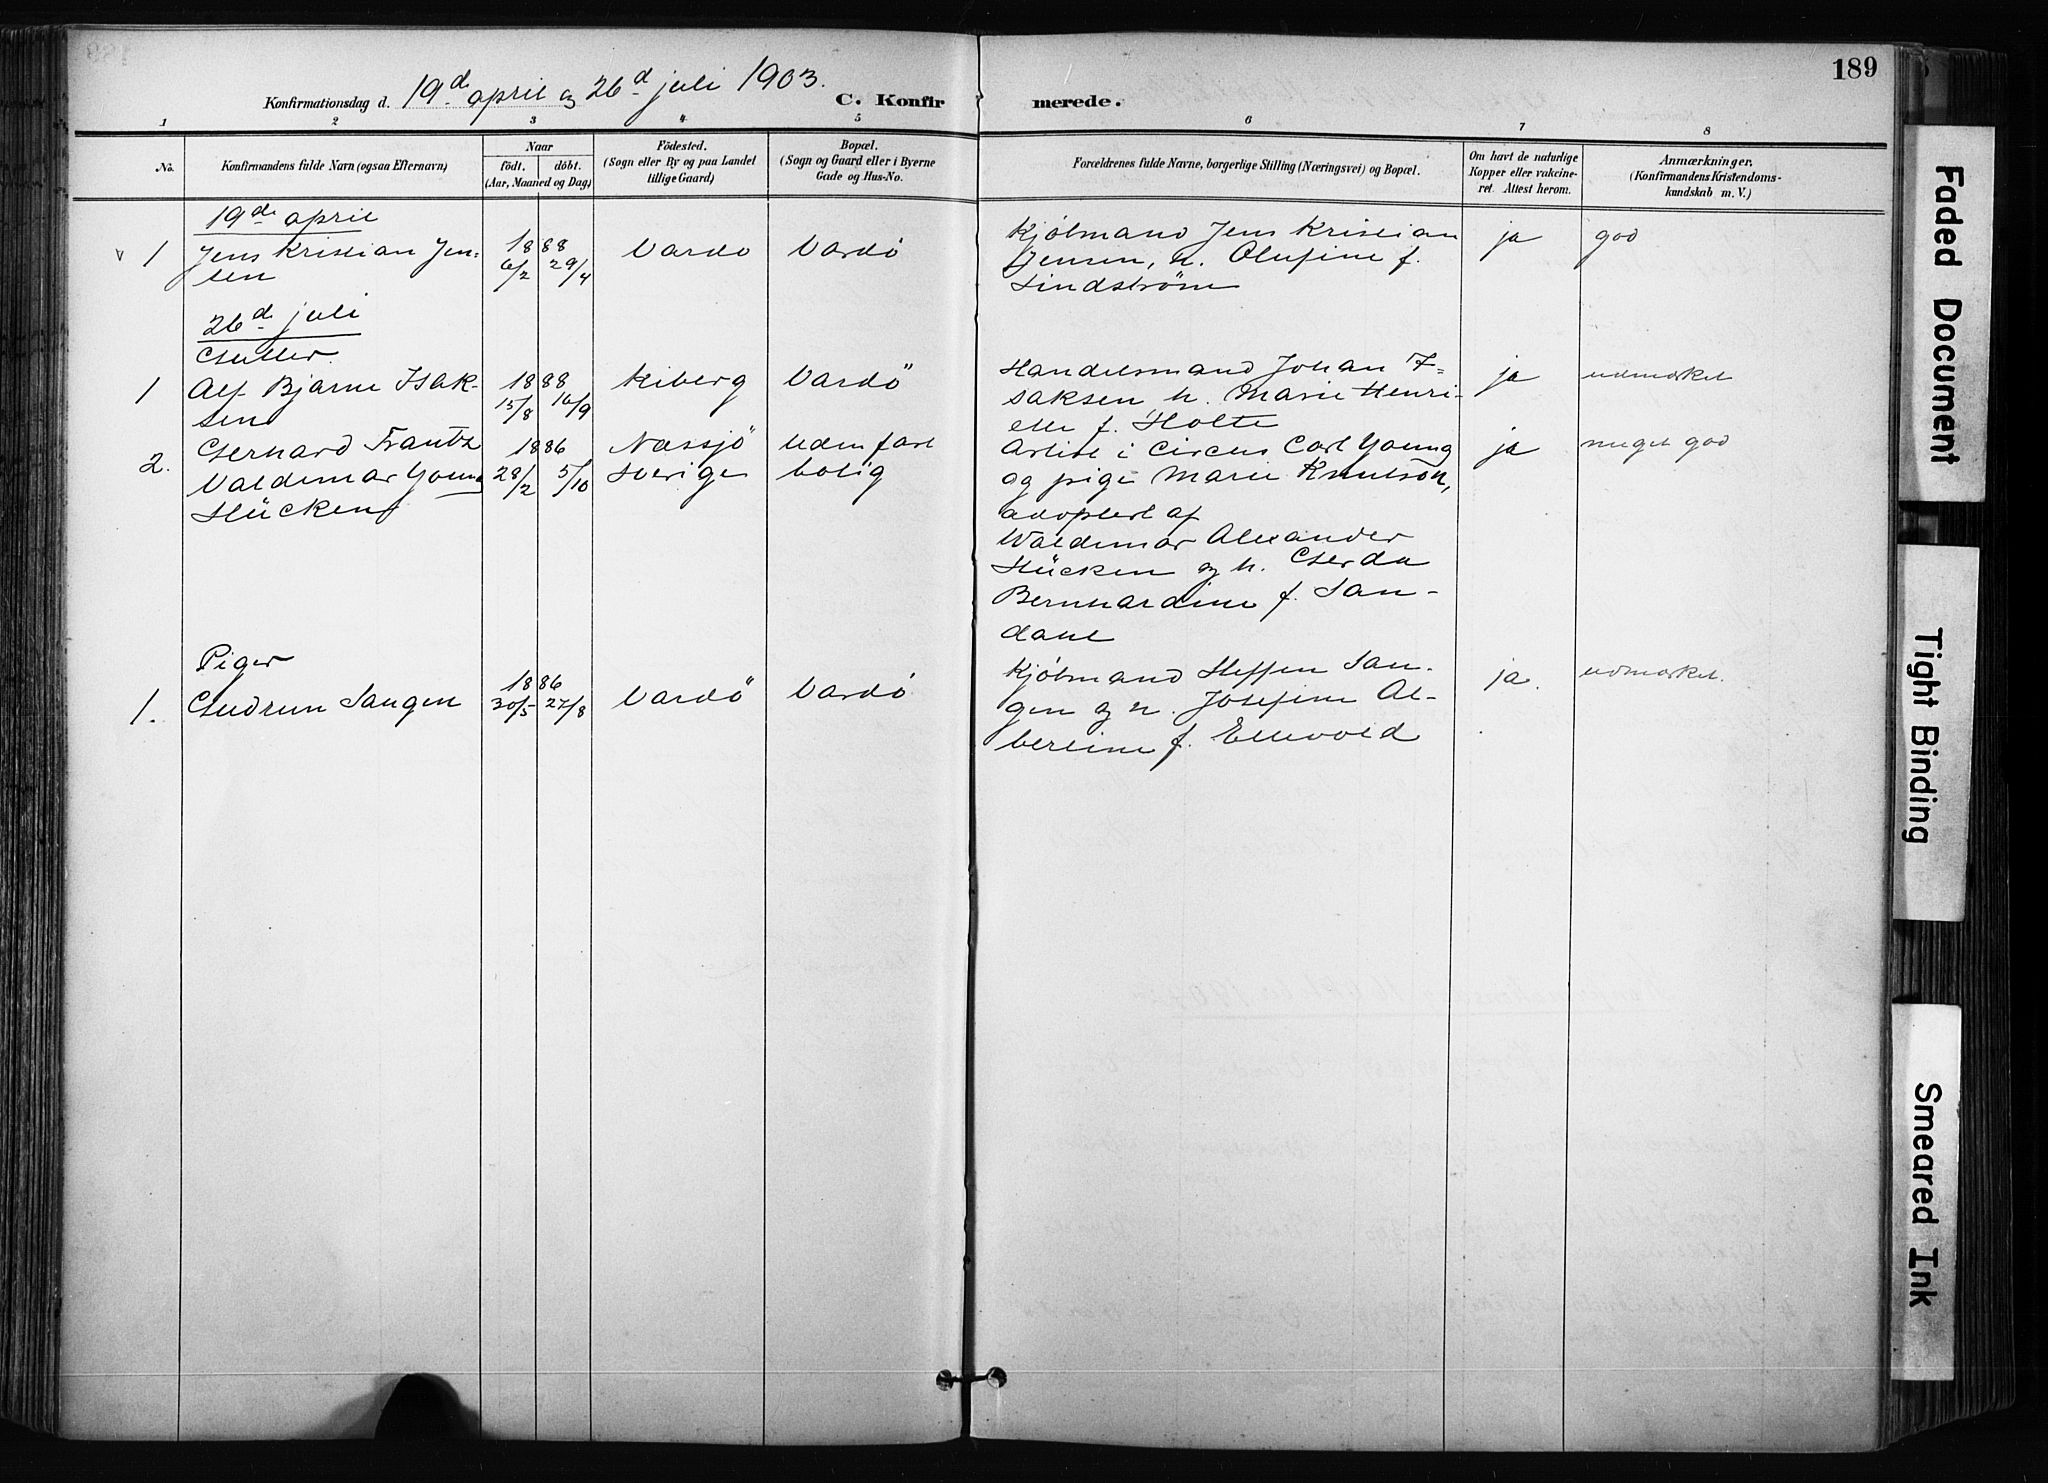 189
Konfirmationsdag d. 19d april og 26d juli 1903.
C. Konfirmerede.
1 2 3 4 5 6 7 8
No.
Konfirmandens fulde Navn (ogsaa Efternavn)
Naar
födt. döbt.
(Aar, Maaned og Dag)
Födested.
(Sogn eller By og paa Landet
tillige Gaard)
Bopæl.
(Sogn og Gaard eller i Byerne
Gade og Hus-No.
Forældrenes fulde Navne, borgerlige Stilling (Næringsvei) og Bopæl.
Om havt de naturlige
Kopper eller vakcine-
ret. Attest herom.
Anmærkninger.
(Konfirmandens Kristendoms-
kundskab m. V.)
19de april
1 Jens Kristian Jen-
sen
1888
6/2 29/4
Vardö
Vardö
Kjöbmand Jens Kristian
Jensen, h. Olufine f.
Lindström
ja
god
26d juli
Gutter.
1 Alf Bjarne Isak-
sen
1888
15/8 16/9
Kiberg
Vardö
Handelsmand Johan I-
saksen h. Marie Henri-
ette f. Holte
ja
udmærket
2. Gerhard Frantz
Valdemar Young
Hücken
1886
28/2 5/10
Næssjö
Sverige
uden fast
bolig
Artist i Circus Carl Young
og pige Marie Knutson,
adoptert af
Waldemar Alexander
Hücken og h. Gerda
Bernhardine f. San-
dahl
ja
meget god
Piger
1. Gudrun Sangen
1886
30/5 27/8
Vardö
Vardö
Kjöbmand Steffen San-
gen og h. Josefine Al-
bertine f. Ellevold
ja.
udmærket.
Faded Document
Tight Binding
Smeared Ink